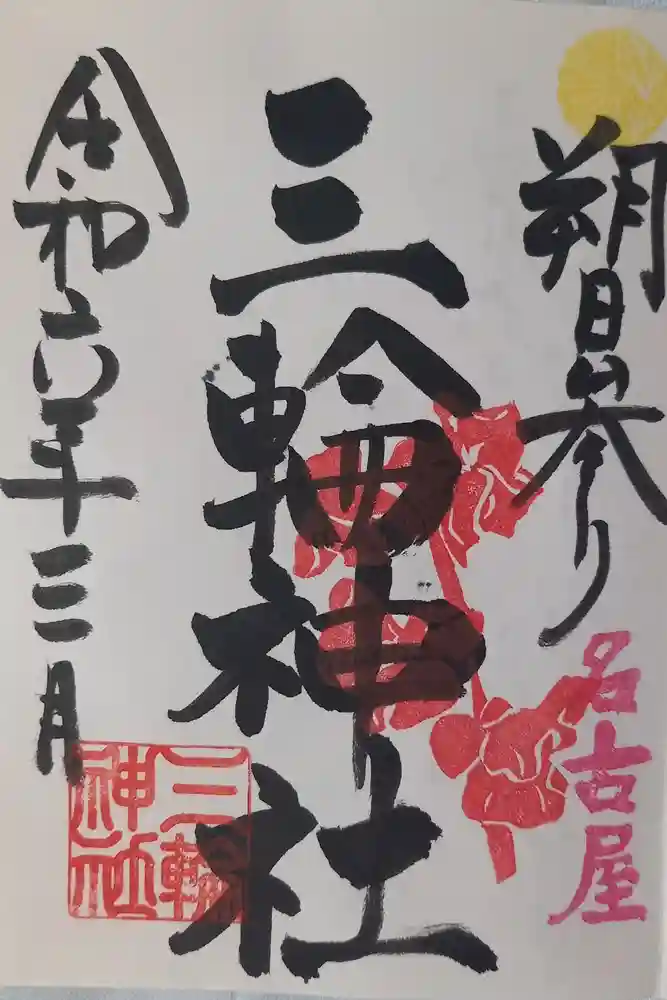 朔日参り
名古屋
三輪神社
令和六年三月
三輪
神社